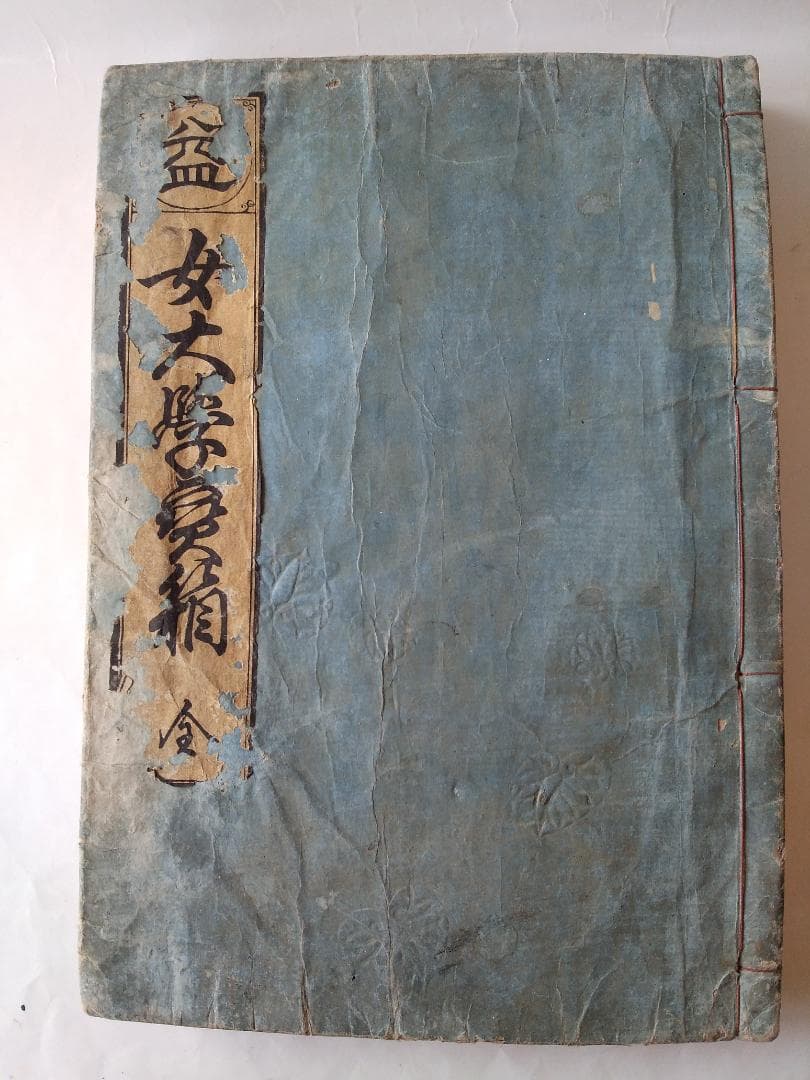 益
女大學寶箱
全